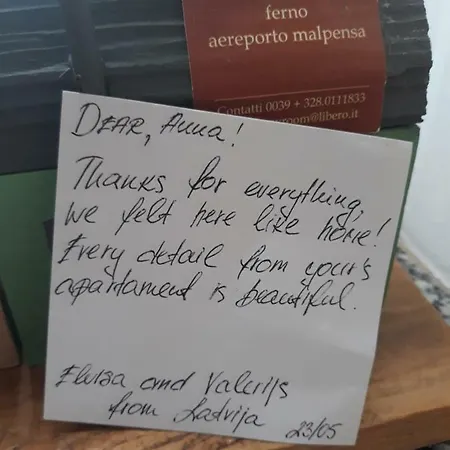 ferno
aereporto malpensa
Contatti 0039 + 328.0111833
room@libero.it
DEAR, Anna!
Thanks for everything,
we felt here like home!
Every detail from your's
apartament is beautiful.
Elviza and Valerijs
from Latvija
23/05